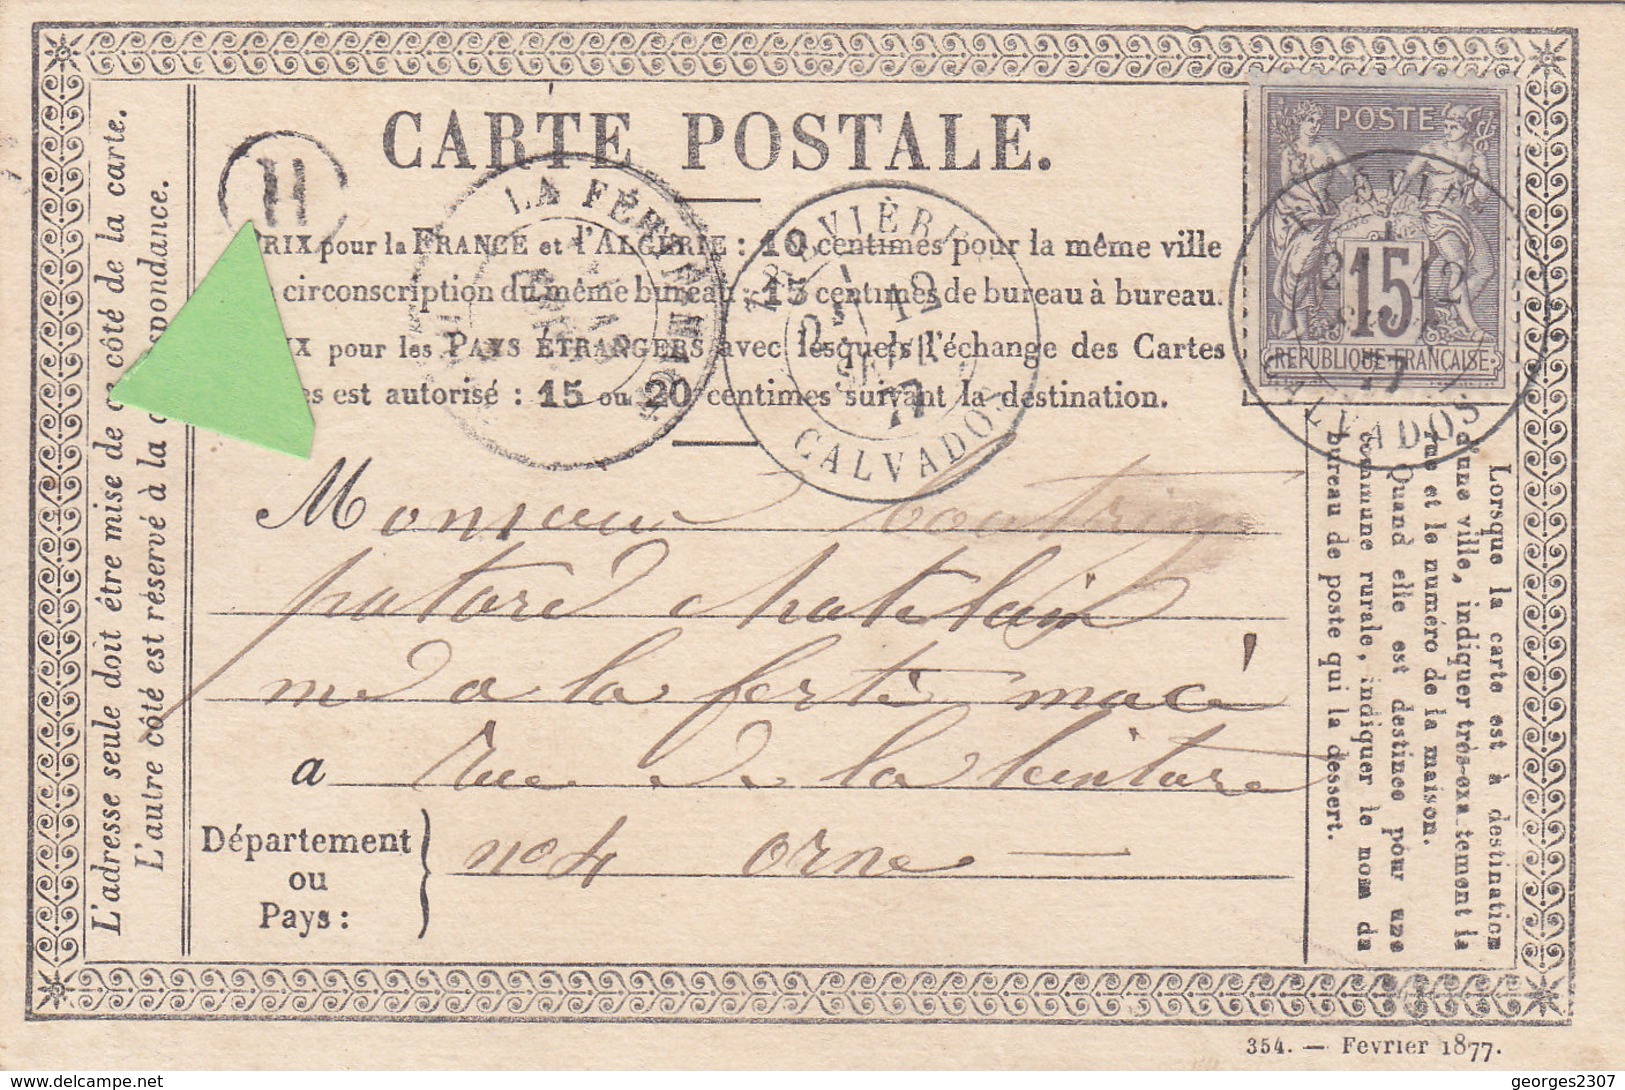 CARTE POSTALE.
H
LA FER
TRÉVIÈRES
12
SEPT
77
CALVADOS
POSTE
15
RÉPUBLIQUE FRANÇAISE
12
77
CALVADOS
RIX pour la FRANCE et l'ALGÉRIE : 10 centimes pour la même ville
circonscription du même bureau ; 15 centimes de bureau à bureau.
IX pour les PAYS ÉTRANGERS avec lesquels l'échange des Cartes
es est autorisé : 15 ou 20 centimes suivant la destination.
L'adresse seule doit être mise de ce côté de la carte.
L'autre côté est réservé à la correspondance.
Monsieur
me a la ferté macé
a rue de la teinture
Département
ou
Pays :
no 4 orne —
Lorsque la carte est à destination
d'une ville, indiquer très-exactement la
rue et le numéro de la maison.
Quand elle est destinée pour une
commune rurale, indiquer le nom du
bureau de poste qui la dessert.
354. — Fevrier 1877.
delcampe.net
georges2307